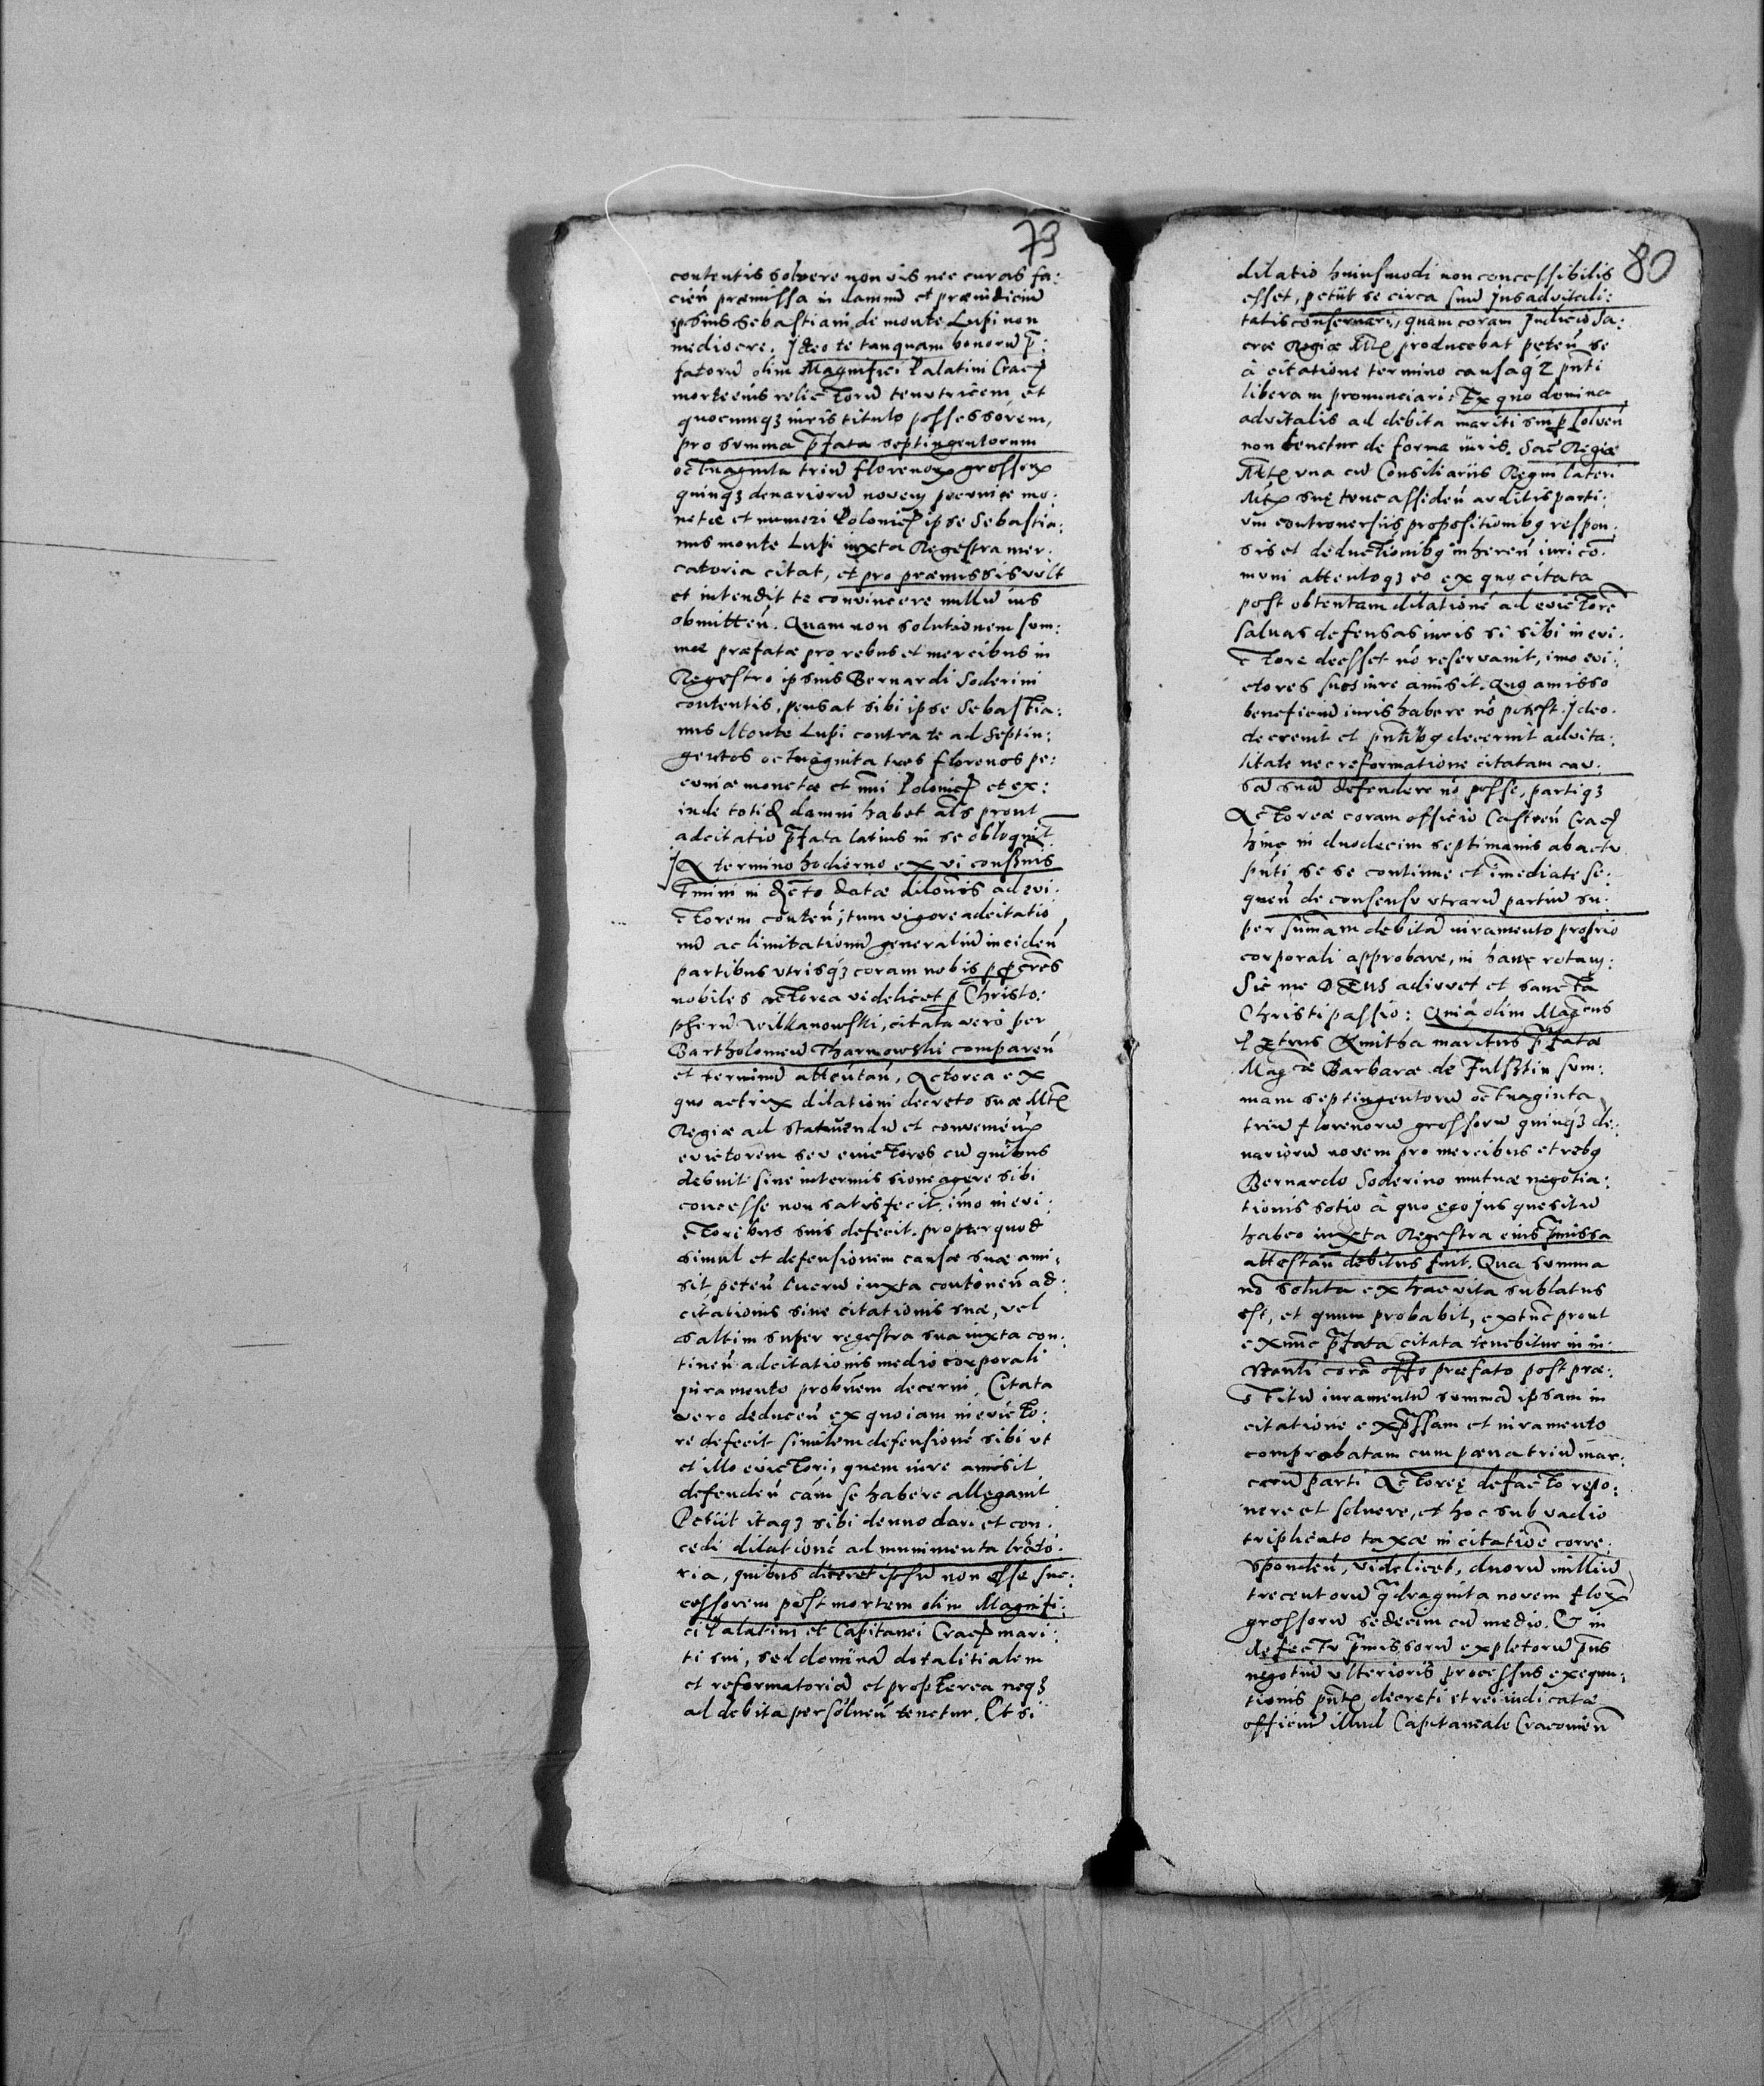 79
contentis solvere non vis nec curas fa:
cień præmissa in damnū et præiudiciū
ipsius Sebastiani de monte Lupi non
mediocre. Ideo te tanquam bonorū p̄:
fatorū olim Magnifici Palatini Crac͡
morte eius relictorū tenutricem et
quocunqȝ iuris titulo possessorem,
pro summa p̄fata septingentorum
octuaginta triū florenoꝝ grossoꝝ
quinqȝ denariorū novem pecuniæ mo:
netæ et numeri Polonic͡ ipse Sebastia:
nus monte Lupi iuxta Regestra mer:
catoria citat, et pro præmissis vult
et intendit te convincere nullū ius
obmitteń. Quam non solutionem sum:
mæ præfatæ pro rebus et mercibus in
Regestro ipsius Bernardi Soderini
contentis, pensat sibi ipse Sebastia:
nus Monte Lupi contra te ad Septin:
gentos octuaginta tres florenos pe:
cuniæ monetæ et nūi Polonic͡ et ex:
inde totid̄ damni habet als prout
adcitatio p̄fata latius in se obloquit̄
In termino hodierno ex vi consimis
Tmini in dēto datæ dilōnis ad evi:
ctorem conteń, tum vigore adcitatio
nū ac limitationū generaliū incideń
partibus utrisqȝ coram nobis p pcres
nobiles actorea videlicet p Christo:
pherū Wilkanowski, citata vero per
Bartholomeū Tharnowski compareń
et terminū attentań, Actorea ex
quo actrix dilationi decreto suæ Mtꝭ
Regiæ ad statuendū et conveniēn̄
evictorem seu evictores cū quibus
debuit sine intermissione agere sibi
concessæ non satisfecit. imo in evi:
ctoribus suis defecit. propter quod
simul et defensionem causæ suæ ami:
sit, peteń lucrū iuxta contineń ad:
citationis sive citationis suæ, vel
saltim super regestra sua iuxta con:
tineń adcitationis medio corporali
iuramento probn̄em decerni. Citata
vero deduceń ex quo iam in evicto:
re defecit similem defensionē sibi ut
et illo evictori, quem iure amisit
defendeń cām se habere allegavit
Petiit itaqȝ sibi denuo dari et con:
cedi dilationē ad munimenta lrāto:
ria, quibus diceret ipsū non esse suc:
cessorem post mortem olim Magnifi:
ci Palatini et Capitanei Crac͡ mari:
ti sui, sed dominā dotalitialem
et reformatoriā et propterea neqȝ
ad debita persolueń tenetur. Et si
80
dilatio huiusmodi non concessibilis
esset, petiit se circa suū Jus advitali:
tatis conservari, quam coram Judicio Sa:
cræ Regiæ Mtꝭ producebat peteń se
à citatione termino causaqȝ pn̄ti
liberam pronunciari: Ex quo domina
advitalis ad debita mariti sui psolveń
non tenetur de forma iuris. Sac̄ Regiæ
Mtꝭ una cū Consiliariis Regni lateri
Mtꝭ suę tunc assideń auditis parti:
um controversiis propositionibꝗ respon:
sis et deductionibꝗ inhereń iuri cō:
muni attentoqȝ eo ex quo citata
post obtentam dilationē ad evictorē
salvas defensas iuris si sibi in evi:
ctore deesset nō reservavit, imo evi:
ctores suos iure amisit. Quo amisso
beneficiū iuris habere nō potest. Ideo
decrevit et pn̄tibꝗ decernit advita:
litate nec reformatione citatam cau:
sā suā defendere nō posse, partiqȝ
Actoreæ coram officio Castreń Crac͡
hinc in duodecim septimanis ab actu
pn̄ti se se continue et īmediate se:
queń de consensu utrarū partiū su:
per summam debitā iuramento proprio
corporali approbare, in hanc rotam:
Sic me DEUS adiuvet et sancta
Christi passio: Quia olim Mag̃cus
Petrus Kmitha maritus p̄fatæ
Mag̃cæ Barbaræ de Fulsztin sum:
mam septingentorū octuaginta
triū florenorū grossorū quinqȝ de:
nariorū novem pro mercibus et rebꝗ
Bernardo Soderino mutuæ negotia:
tionis sotio à quo ego Jus quesitū
habeo iuxta Regestra eius p̄missa
attestań debitus fuit. Qua summa
nō soluta ex hac vita sublatus
est, et quum probabit, extūc prout
ex nūc p̄fata citata tenebitur in in:
stanti corā off̄o præfato post præ:
stitū iuramentū summā ipsam in
citatione exp̄ssam et iuramento
comprobatam cum pæna triū mar:
carū parti Actoreę de facto repo:
nere et solvere, et hoc sub vadio
triplicato taxæ in citatiōe corre:
spondeń, videlicet, duorū milliū
trecentorū q̄draginta novem floꝝ
grossorū sedecim cū medio. Et in
defectu p̄missorū expletorū p̄ns
negotiū ulterioris processus exequu:
tionis pn̄tꝭ decreti et rei iudicatæ
officiū illud Capitaneale Cracovień